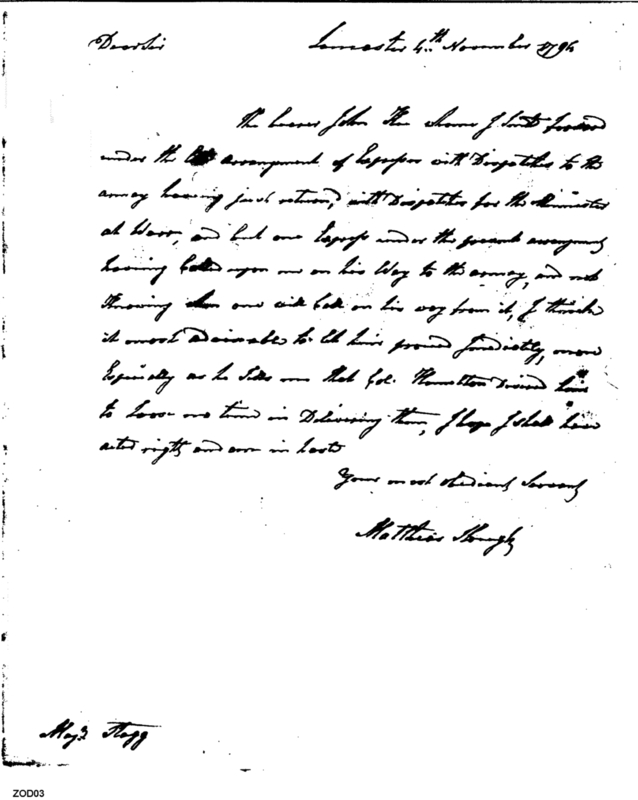 Dear Sir Lancaster 4th November 1794
The bearer John the Same I Sent forward
under the arrangement of Expresses with Dispatches to the
army having just returned, with Dispatches for the Minister
at Warr, and but one Express under the present arrangement
having Called upon me on his Way to the army, and not
Knowing when one will Call on his way from it, I think
it most adviseable to let him proceed Imediatly, more
Especially as he Tells me that Col. Hamilton Desired him
to Loose no time in Delivering them, I hope I shall have
acted right and am in haste
Your most obedient Servant
Matthias Slough
Majr Stagg
ZOD03